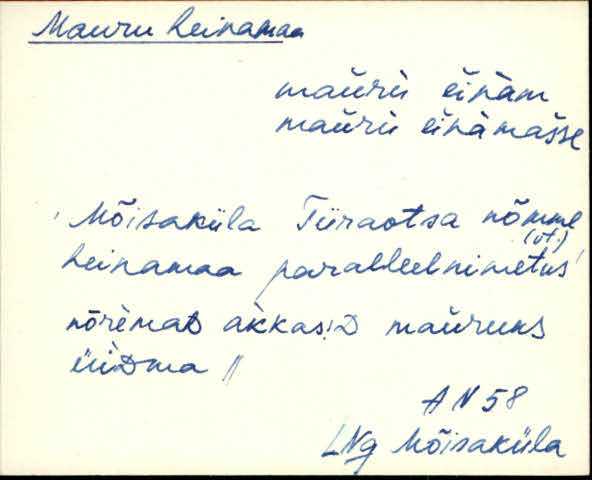 Mauru heinamaa
maŭru ēinäm
maŭru ēinämässe
'Mõisaküla Tiiraotsa nõmme
(vt.)
heinamaa paralleelnimetus'
nōrèmaD akkasiD maŭruks
üiDma //
AN 58
LNg Mõisaküla